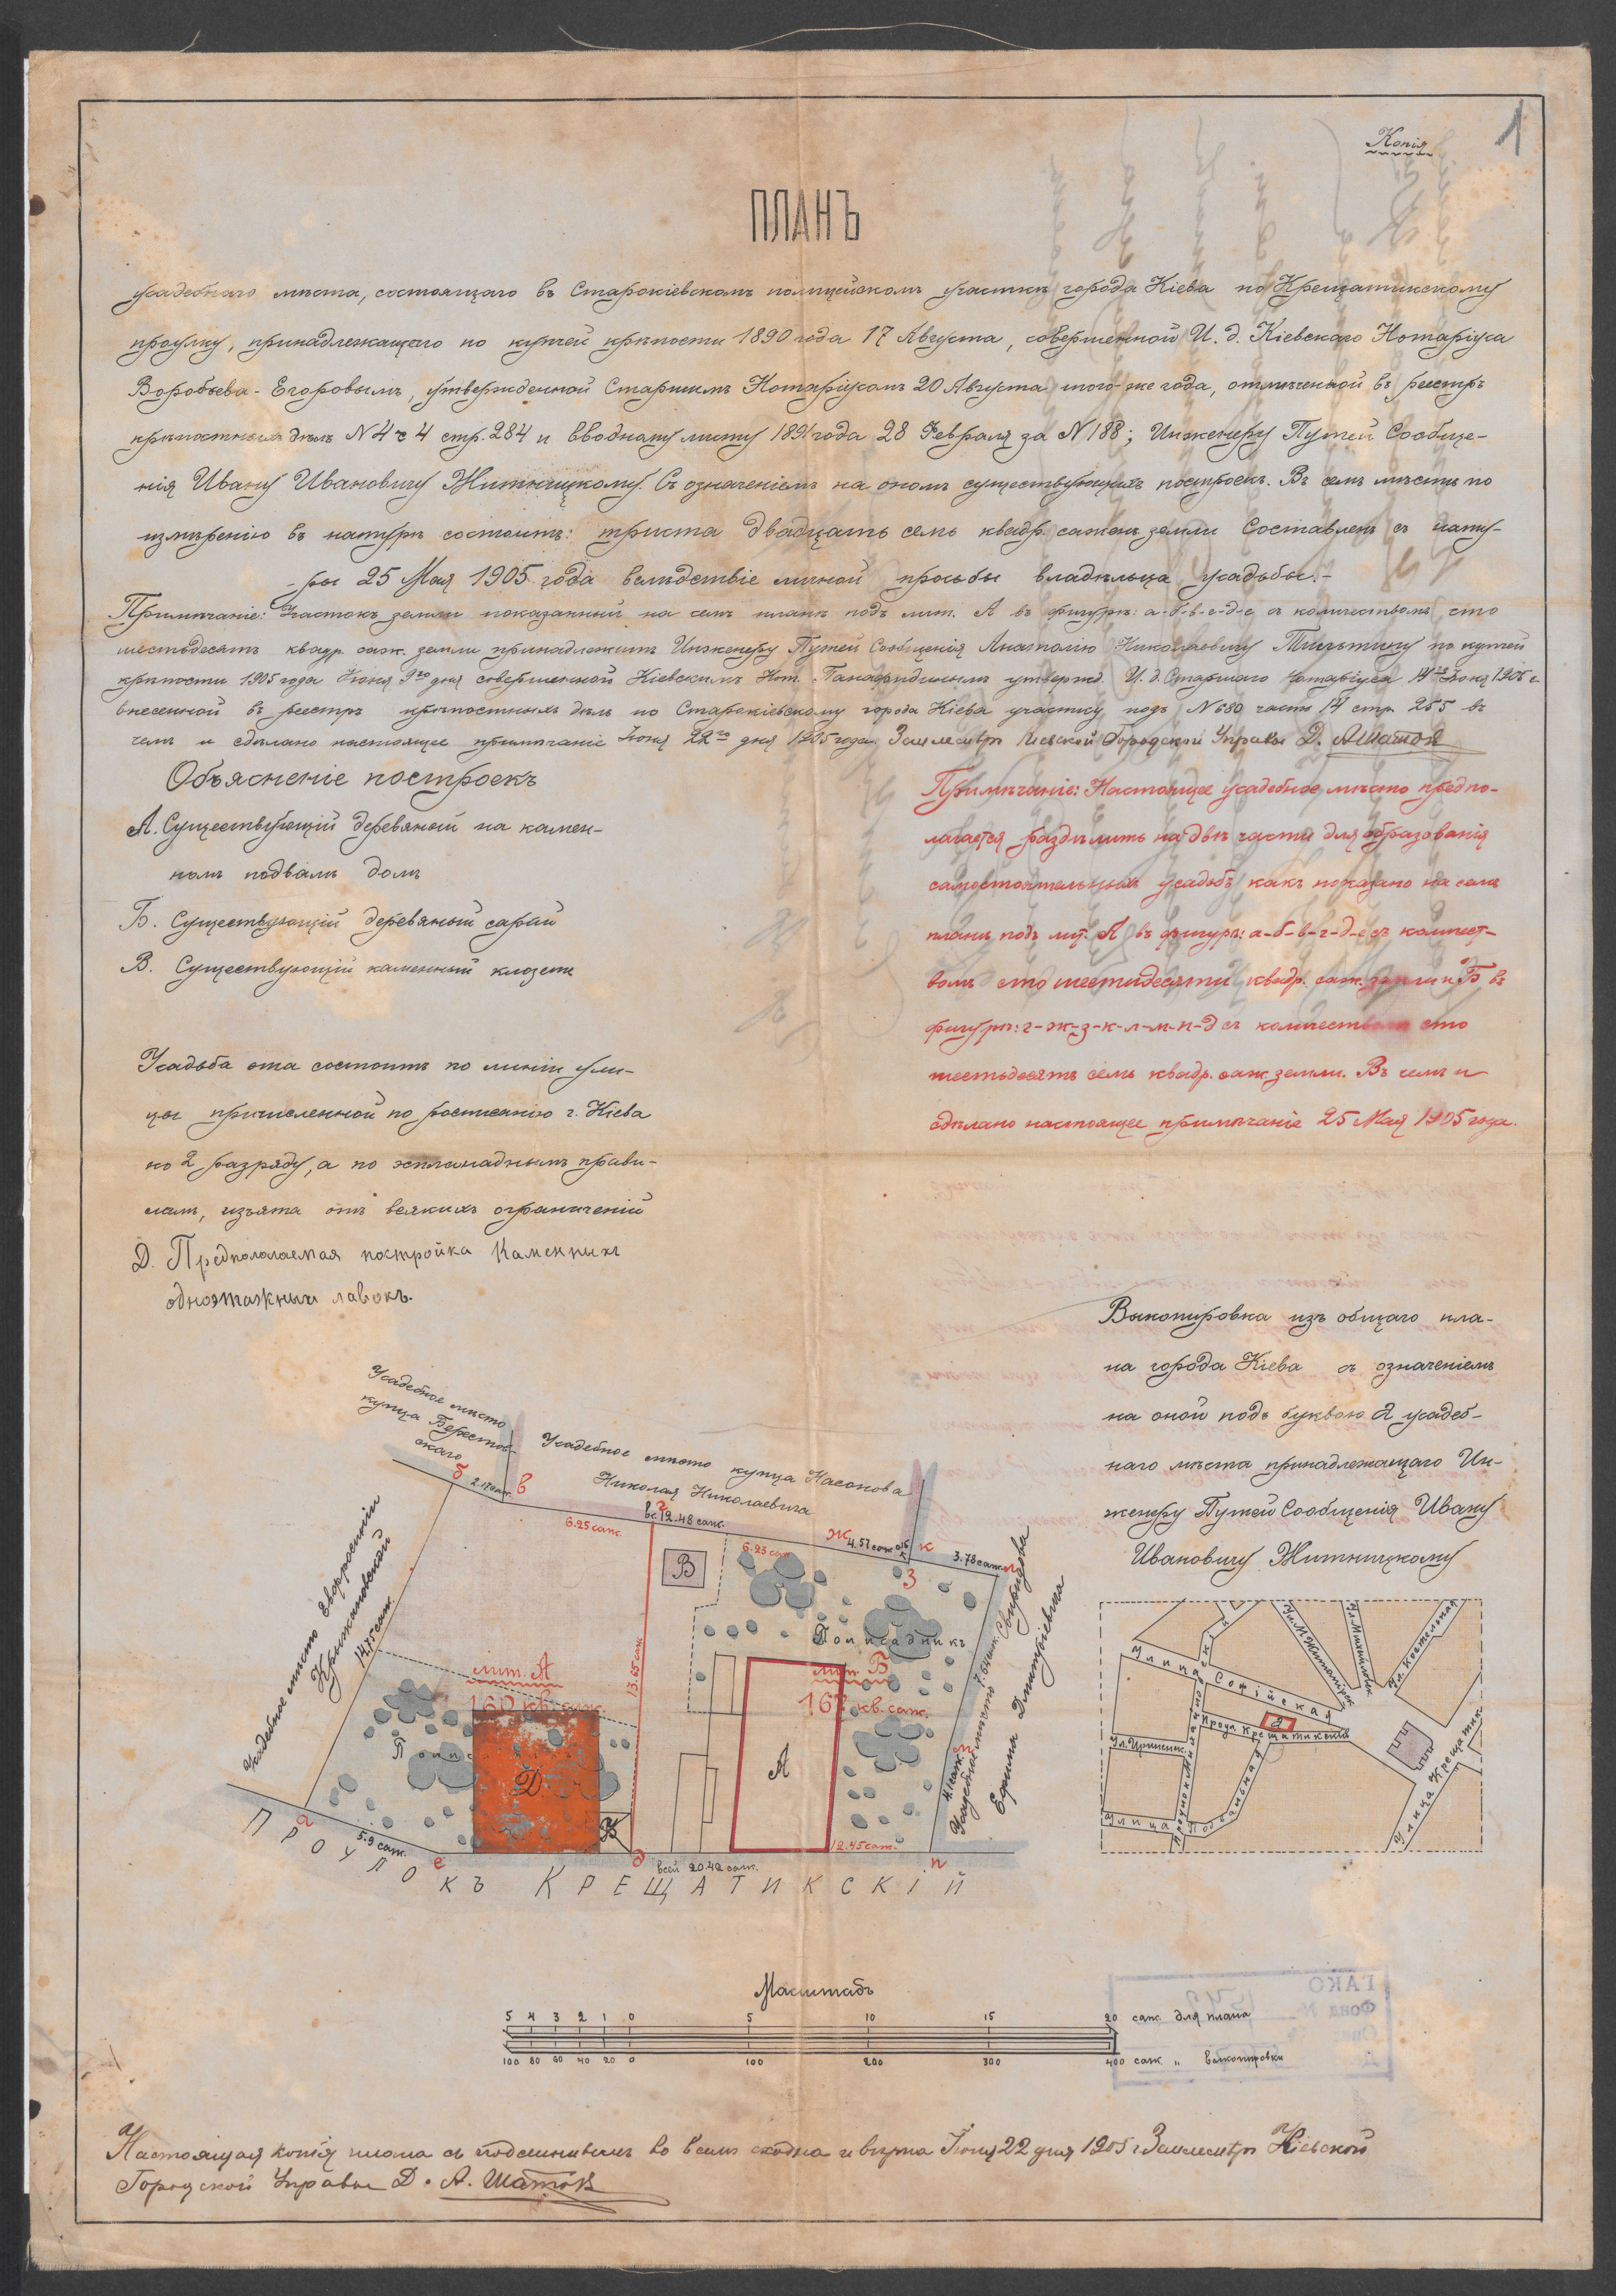 Копія
1
ПЛАНЪ
усадебнаго мѣста, состоящаго въ Старокіевскомъ полицейскомъ участкѣ города Кіева по Крещатикскому
проулку, принадлежащаго по купчей крѣпости 1890 года 17 Августа, совершенной И. д. Кіевскаго Нотаріуса
Воробьева-Егоровымъ, утвержденной Старшимъ Нотаріусомъ 20 Августа того-же года, отмѣченной въ реестрѣ
крѣпостныхъ дѣлъ N 4 ч 4 стр. 284 и вводному листу 1891 года 28 Февраля за N 188; Инженеру Путей Сообще-
нія Ивану Ивановичу Житницкому. Съ означеніемъ на ономъ существующихъ построекъ. Въ семъ мѣстѣ по
измѣренію въ натурѣ состоитъ: триста двадцать семь квадр. сажень земли Составленъ съ нату-
ры 25 Мая 1905 года вслѣдствіе личной просьбы владѣльца усадьбы.-
Примѣчаніе: Участокъ земли показанный на семъ планѣ подъ лит. А въ фигурѣ: а-б-в-г-д-е съ количествомъ сто
шестьдесятъ квадр. саж. земли принадлежитъ Инженеру Путей Сообщенія Анатолію Николаевичу по купчей
крѣпости 1905 года Іюня 9го дня совершенной Кіевскимъ Нот. утвержд. И. д. Старшаго Нотаріуса Іюня 1905 г.
внесенной въ реестръ крѣпостныхъ дѣлъ по Старокіевскому города Кіева участку подъ N 680 часть 14 стр. 255 въ
чемъ и сдѣлано настоящее примѣчаніе Іюня 22го дня 1905 года. Землемѣръ Кіевской Городской Управы Д. А Шатов
Объясненіе построекъ
А. Существующій деревяной на камен-
номъ подвалѣ домъ
Б. Существующій деревяный сарай
В. Существующій каменный клозетъ
Усадьба эта состоитъ по линіи ули-
цы причисленной по росписанію г. Кіева
ко 2 разряду, а по эспланаднымъ прави-
ламъ, изъята отъ всякихъ ограниченій
Д. Предполагаемая постройка Каменныхъ
одноэтажныхъ лавокъ.
Примѣчаніе: Настоящее усадебное мѣсто предпо-
лагается раздѣлить на двѣ части для образованія
самостоятельныхъ усадьбъ какъ показано на семъ
планѣ подъ лит. А въ фигурѣ: а-б-в-г-д-е съ количест-
вомъ сто шестидесяти квадр. саж. земли и Б въ
фигурѣ: г-ж-з-к-л-м-п-д съ количествомъ сто
шестьдесятъ семь квадр. саж. земли. Въ чемъ и
сдѣлано настоящее примѣчаніе 25 Мая 1905 года.
Выкопировка изъ общаго пла-
на города Кіева съ означеніемъ
на оной подъ буквою а усадеб-
наго мѣста принадлежащаго Ин-
женеру Путей Сообщенія Ивану
Ивановичу Житницкому
Усадебное мѣсто
купца Берестов-
скаго
Усадебное мѣсто купца Насонова
Николая Николаевича
б
2.17 саж.
в
6.25 саж.
г
вс. 12.48 саж.
6.23 саж.
ж
4.57 саж
з
к
3.78 саж.
л
Усадебное мѣсто Евфросиніи
Крыжановской
14.75 саж.
В
Полисадникъ
лит. А
160 кв. саж.
13.65 саж.
лит. Б
167 кв. саж.
Д
А
Б
м
4.1 саж.
Усадебное мѣсто Свиридова
Ефима Дмитріевича
а
5.9 саж.
е
д
всей 20.42 саж.
12.45 саж.
п
ПРОУЛОКЪ КРЕЩАТИКСКІЙ
Улица Софійская
Ул. М. Житомірск.
Ул. Михайловск.
Ул. Костельная
Проул. Крещатикскій
а
Ул. Ирининск.
Улица Крещатик.
Улица
Масштабъ
5 4 3 2 1 0 5 10 15 20 саж. для плана
100 80 60 40 20 0 100 200 300 400 саж. " выкопировки
ГАКО
Фонд №
Настоящая копія плана съ подлиннымъ во всемъ сходна и вѣрна Іюня 22 дня 1905 г Землемѣръ Кіевской
Городской Управы Д. А. Шатов